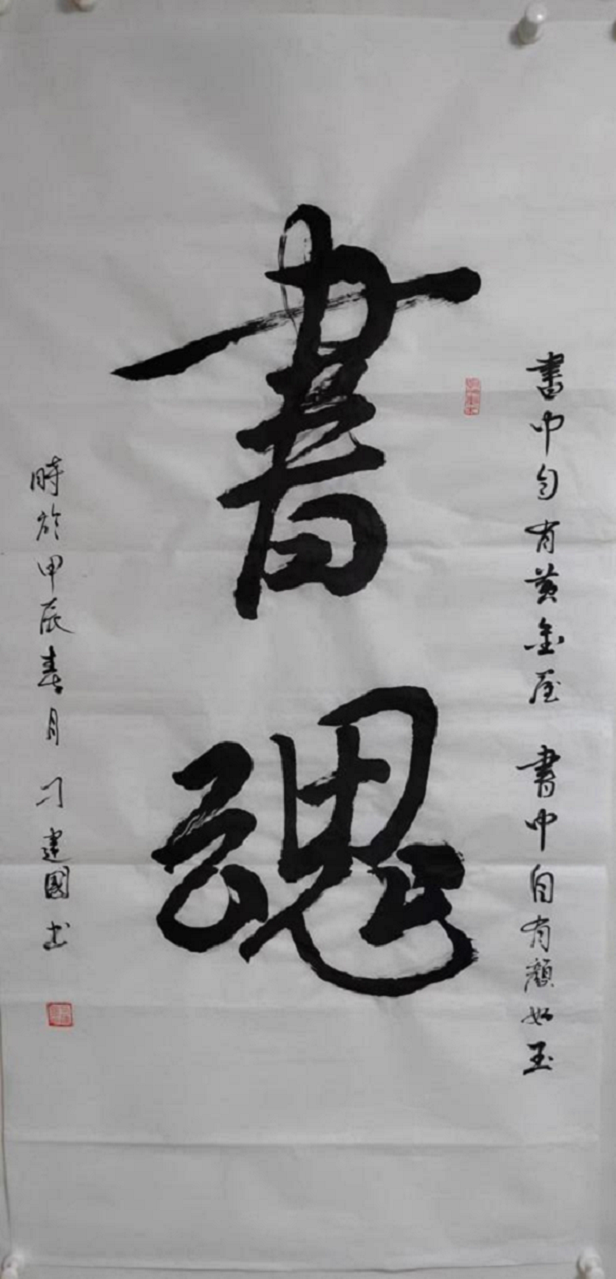 書中自有黃金屋 書中自有顏如玉
書魂
時於甲辰春月 刁建國书